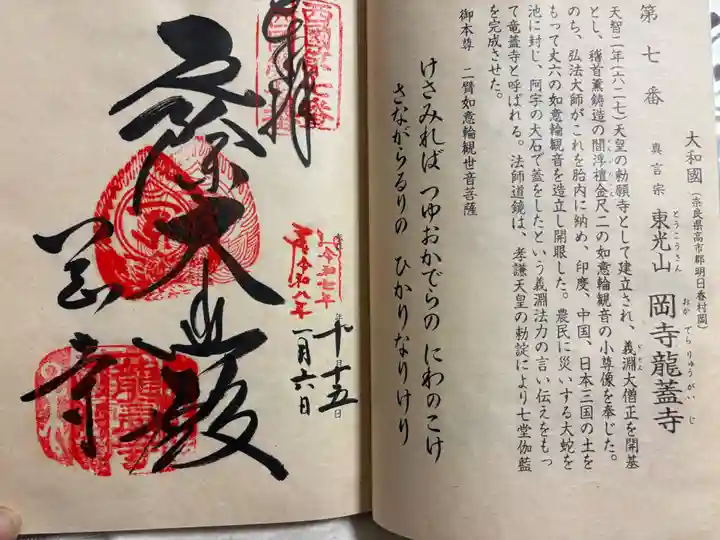 第七番
大和國(奈良県高市郡明日香村岡)
真言宗 東光山 岡寺龍蓋寺
とうこうさん おか でら りゅう がい じ
天智二年(六二七)天皇の勅願寺として建立され、義淵大僧正を開基
とし、稽首薫鋳造の閻浮檀金尺二の如意輪観音の小尊像を奉じた。
のち、弘法大師がこれを胎内に納め、印度、中国、日本三国の土を
もって丈六の如意輪観音を造立し開眼した。農民に災いする大蛇を
池に封じ、阿字の大石で蓋をしたという義淵法力の言い伝えをもっ
て竜蓋寺と呼ばれる。法師道鏡は、孝謙天皇の勅諚により七堂伽藍
を完成させた。
御本尊 二臂如意輪観世音菩薩
けさみれば つゆおかでらの にわのこけ
さながらるりの ひかりなりけり
奉拝
西國第七番
令和七年
十月十五日
令和八年
一月六日
大悲殿
岡寺